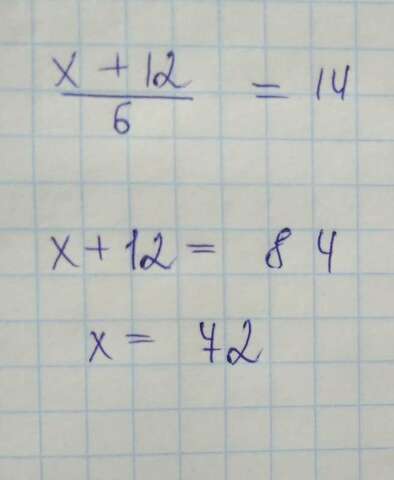 x + 12
6
= 14
x + 12 = 84
x = 72